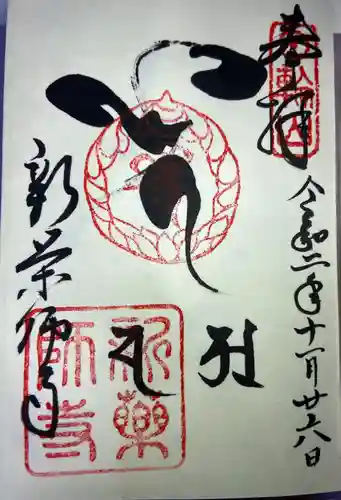 奉拝
令和二年十一月廿六日
新薬師寺
新薬
師寺